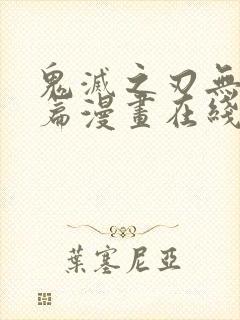 鬼滅之刃無
篇漫畫在綫
葉塞尼亞